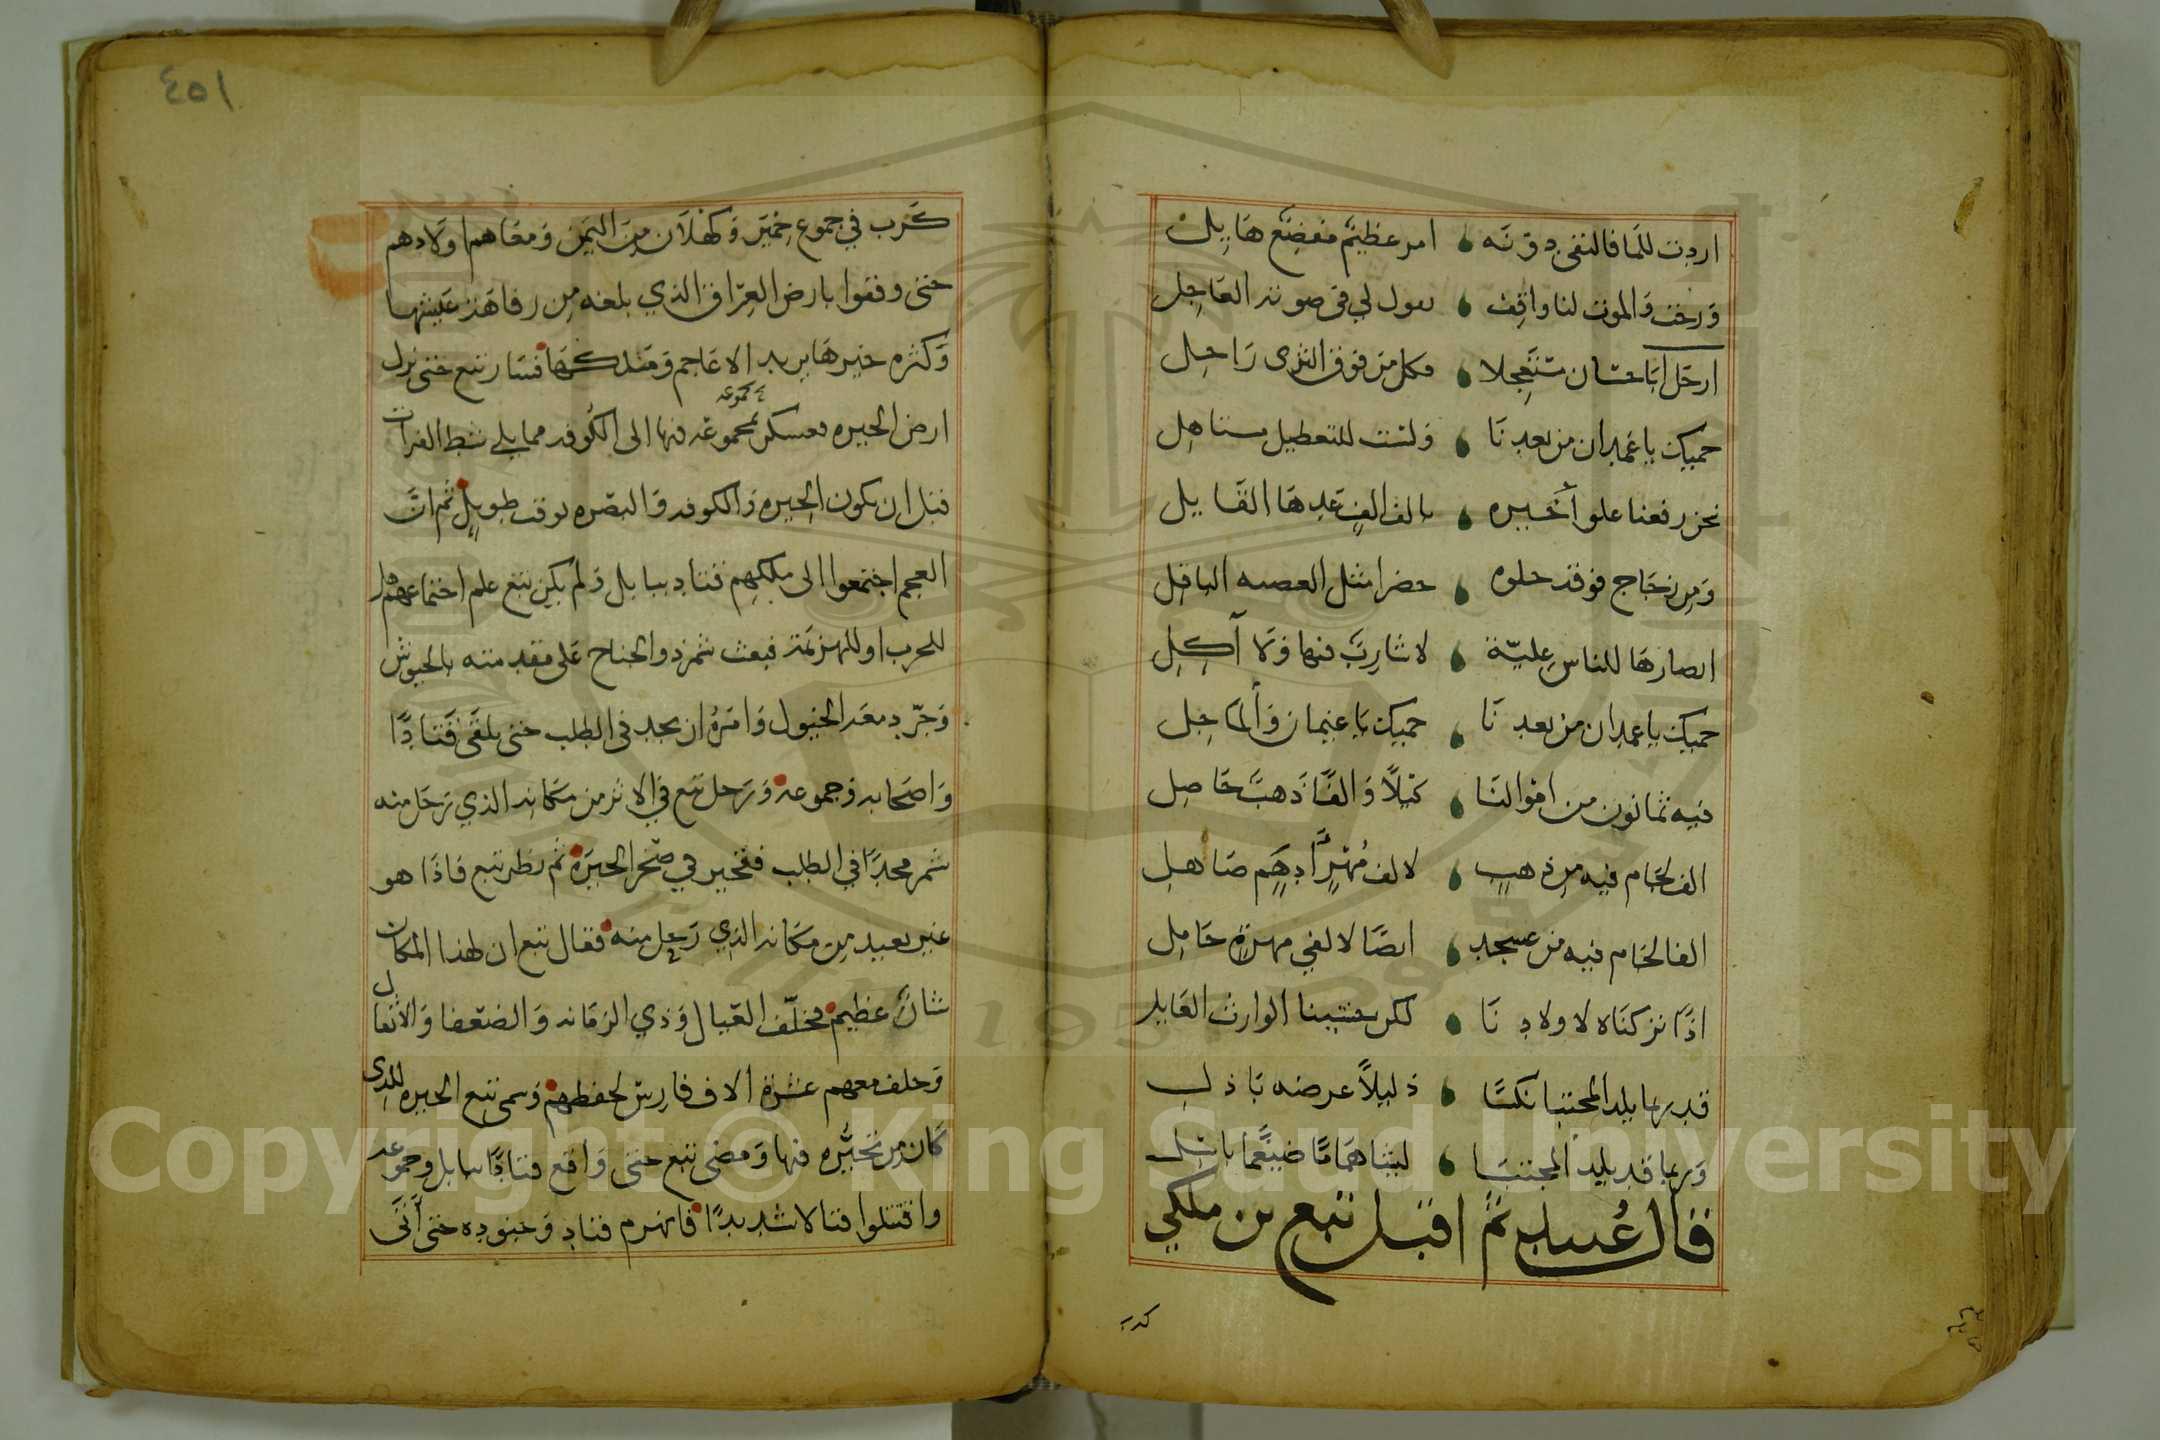 اردت للما فالتقى دونه امر عظيم مفضع هايل
ورحت والموت لنا واقف يقول لي في صوته العاجل
ارحل اباحسان مستعجلا فكل من فوق الثرى راحل
حميك يا غمدان من بعدنا ولست للتعطيل مستاهل
نحن رفعنا علو أخيره بالف الف عدها القايل
ومن زجاج فوقه حلوه خضرا مثل العصبه الباقل
ابصارها للناس علية لا شارب فيها ولا آكل
حميك يا غمدان من بعدنا حميك يا عنيمان والماجل
فيه ثمانون من اموالنا كيلاً والفًا ذهب حاصل
الف لجام فيه من ذهب لالف مهر ادهم صاهل
الفا لجام فيه من عسجد ايضًا لالفي مهرة حامل
اذا تركناه لاولادنا لكن سنتينا الوارث القابل
قد ربما يلد المجتبا نكسًا ذليلاً عرضه باذل
وربما قد يلد المجتبا ليثا هماما ضيغما باسل
قال عبيد ثم اقبل تبع بن ملكي
كرب
كرب في جموع حمير وكهلان من اليمن ومعاهم اولادهم
حتى وقفوا بارض العراق الذي بلغه من رفاهة عيشها
وكثره خيرها يريد الاعاجم ومن فسار تبع حتى نزل
ارض الحيره فعسكر بمجموعه فيها الى الكوفه مما يلي شط الفرات
بجموعه
قبل ان يكون الحيره والكوفه والبصره بوقت طويل ثم ان
العجم اجتمعوا الى ملكهم قباد ببابل ولم يكن تبع علم اجتماعهم هل
للحرب او للهزيمة فبعث شمر ذو الجناح على مقدمته بالجيوش
وجرد معه الخيول وامره ان يجد في الطلب حتى يلقى قبادًا
واصحابه وجموعه ورحل تبع في الاثر من مكانه الذي رحل منه
شمر مجدًا في الطلب فتحير في صحر الحيرة ثم نظر تبع فاذا هو
غير بعيد من مكانه الذي رحل منه فقال تبع ان لهذا المكان
شان عظيم فخلف العيال وذي الزمانه والضعفا والاثقال
وخلف معهم عشرة الاف فارس لحفظهم وسمى تبع الحيره للذي
كان من تحيره فيها ومضى تبع حتى واقع قبادًا ببابل وجموعه
واقتتلوا قتالا شديدًا فانهزم قباد وجنوده حتى أتى
٤٥١
Copyright © King Saud University
1957